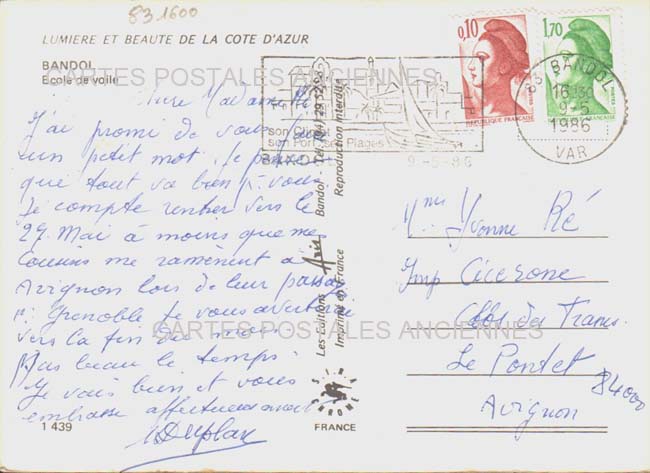 83 1600
LUMIERE ET BEAUTE DE LA COTE D'AZUR
BANDOL
Ecole de voile
CARTES POSTALES ANCIENNES
0,10
1,70
REPUBLIQUE FRANÇAISE
83 BANDOL
16H30
9-5
1986
VAR
son Climat
son Port ses Plages
BANDOL
9-5-86
J'ai promi de vous
un petit mot. Je
que tout va bien p. vous
Je compte rentrer vers le
27 Mai à moins que mes
Cousins me ramènent à
Avignon lors de leur passage
p. Grenoble Je vous avertirai
vers la fin du mois
Pas beau le temps.
Je vais bien et vous
embrasse affectueusement
Les Editions Aris Bandol - Tél. (94) 29.52.93
Imprimé en France Reproduction interdite
Mme Yvonne Ré
Imp Cicerone
CARTES POSTALES ANCIENNES
Le Pontet
84000
Avignon
1 439
FRANCE